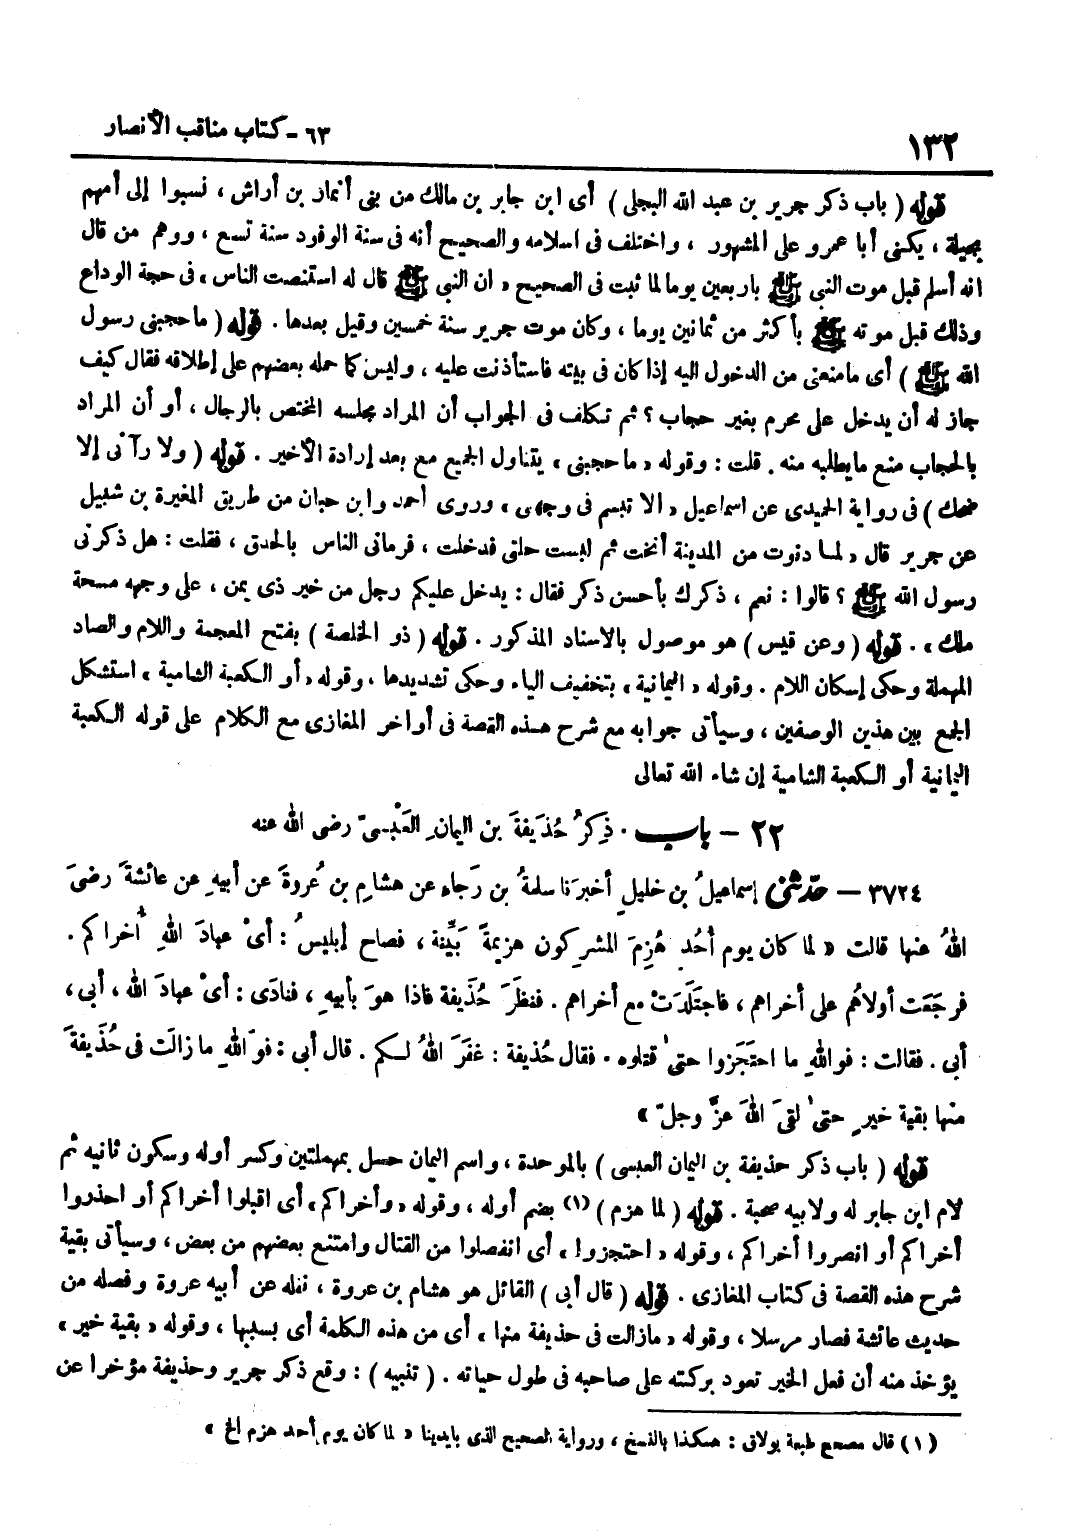 ١٣٢
٦٣ - كتاب مناقب الأنصار
قوله ( باب ذكر جرير بن عبد الله البجلى ) أى ابن جابر بن مالك من بنى أنمار بن أراش ، نسبوا إلى أمهم
بجيلة ، يكنى أبا عمرو على المشهور ، واختلف فى اسلامه والصحيح أنه فى سنة الوفود سنة تسع ، ووهم من قال
انه أسلم قبل موت النبى ﷺ باربعين يوما لما ثبت فى الصحيح « ان النبى ﷺ قال له استنصت الناس » فى حجة الوداع
وذلك قبل موته ﷺ بأكثر من ثمانين يوما ، وكان موت جرير سنة خمسين وقيل بعدها . قوله ( ما حجبنى رسول
الله ﷺ ) أى مامنعنى من الدخول اليه إذا كان فى بيته فاستأذنت عليه ، وليس كما حمله بعضهم على إطلاقه فقال كيف
جاز له أن يدخل على محرم بغير حجاب ؟ ثم تكلف فى الجواب أن المراد مجلسه المختص بالرجال ، أو أن المراد
بالحجاب منع مايطلبه منه . قلت : وقوله « ما حجبنى » يتناول الجميع مع بعد إرادة الأخير . قوله ( ولا رآنى إلا
ضحك ) فى رواية الحميدى عن اسماعيل « الا تبسم فى وجهى » وروى أحمد وابن حبان من طريق المغيرة بن شبيل
عن جرير قال « لما دنوت من المدينة أنخت ثم لبست حلتى فدخلت ، فرمانى الناس بالحدق ، فقلت : هل ذكرنى
رسول الله ﷺ ؟ قالوا : نعم ، ذكرك بأحسن ذكر فقال : يدخل عليكم رجل من خير ذى يمن ، على وجهه مسحة
ملك » . قوله ( وعن قيس ) هو موصول بالاسناد المذكور . قوله ( ذو الخلصة ) بفتح المعجمة واللام والصاد
المهملة وحكى إسكان اللام . وقوله « اليمانية » بتخفيف الياء وحكى تشديدها ، وقوله « أو الكعبة الشامية » استشكل
الجمع بين هذين الوصفين ، وسيأتى جوابه مع شرح هذه القصة فى أواخر المغازى مع الكلام على قوله الكعبة
اليمانية أو الكعبة الشامية إن شاء الله تعالى
٢٢ - باب . ذِكرُ حُذَيفةَ بن اليمانِ العَبْسىّ رضى الله عنه
٣٧٢٤ - حدّثنى إسماعيلُ بن خليلٍ أخبرَنا سلمةُ بن رَجاء عن هشامِ بن عُروةَ عن أبيهِ عن عائشةَ رضىَ
اللهُ عنها قالت « لما كان يوم أُحُدٍ هُزِمَ المشركون هزيمةً بَيِّنة ، فصاح إبليسُ : أىْ عبادَ اللهِ أُخراكم .
فرجَعَت أولاهُم على أخراهم ، فاجتَلَدَتْ مع أخراهم . فنظَرَ حُذَيفة فاذا هوَ بأبيهِ ، فنادَى : أىْ عبادَ الله ، أبى ،
أبى . فقالت : فواللهِ ما احتَجَزوا حتىٰ قتلوه . فقال حُذيفة : غفَرَ اللهُ لكم . قال أبى : فوَاللهِ ما زالَت فى حُذَيفةَ
منها بقية خيرٍ حتىٰ لقىَ اللهَ عزَّ وجلّ »
قوله ( باب ذكر حذيفة بن اليمان العبسى ) بالموحدة ، واسم اليمان حسل بمهملتين وكسر أوله وسكون ثانيه ثم
لام ابن جابر له ولابيه صحبة . قوله ( لما هزم ) (١) بضم أوله ، وقوله « وأخراكم » أى اقبلوا أخراكم أو احذروا
أخراكم أو انصروا أخراكم ، وقوله « احتجزوا » أى انفصلوا من القتال وامتنع بعضهم من بعض ، وسيأتى بقية
شرح هذه القصة فى كتاب المغازى . قوله ( قال أبى ) القائل هو هشام بن عروة ، نقله عن أبيه عروة وفصله من
حديث عائشة فصار مرسلا ، وقوله « مازالت فى حذيفة منها » أى من هذه الكلمة أى بسببها ، وقوله « بقية خير »
يؤخذ منه أن فعل الخير تعود بركته على صاحبه فى طول حياته . ( تنبيه ) : وقع ذكر جرير وحذيفة مؤخرا عن
(١) قال مصحح طبعة بولاق : هكذا بالنسخ ، ورواية الصحيح الذى بايدينا « لما كان يوم أحد هزم الخ »